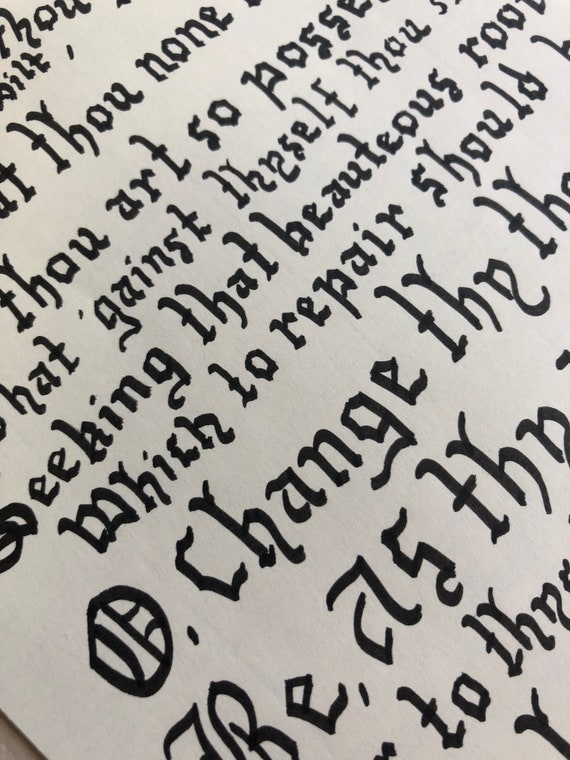 thou
wilt,
thou none
thou art so posse
hat 'gainst thyself thou s
Seeking that beauteous roo
Which to repair should b
O, Change thy tho
Be, As thy
to thys